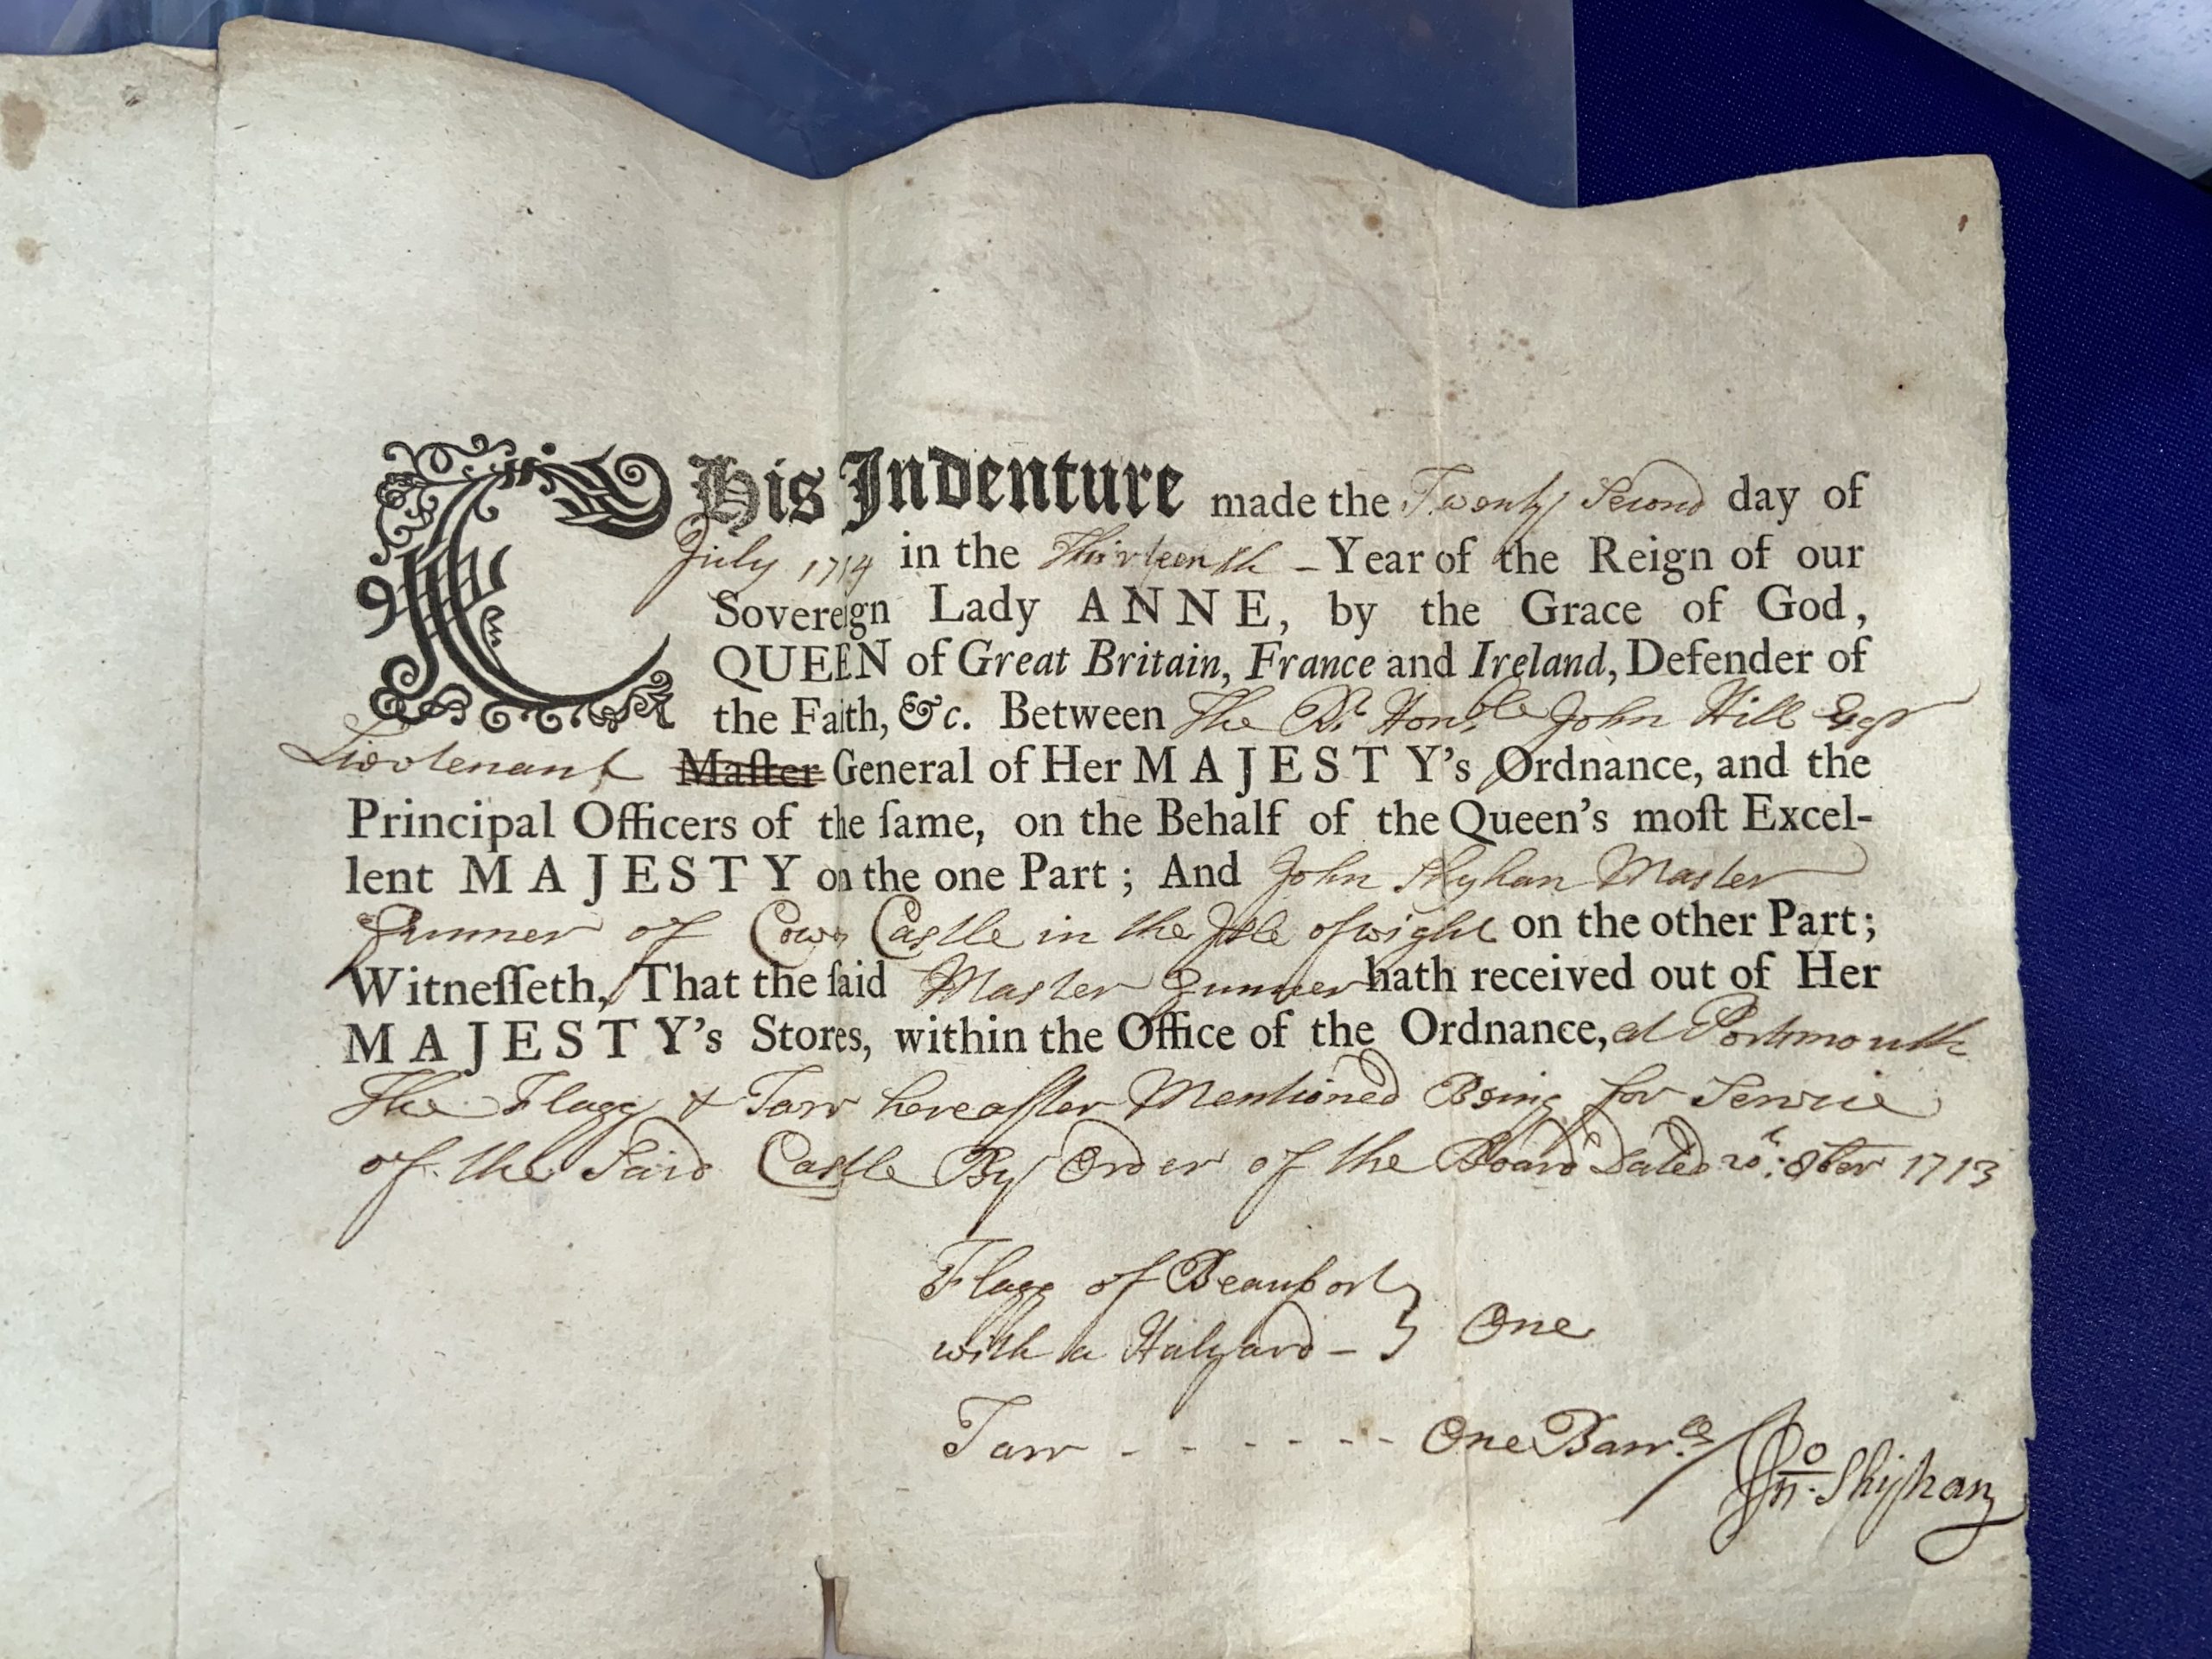 This Indenture made the Twenty Second day of
July 1714 in the Thirteenth – Year of the Reign of our
Sovereign Lady ANNE, by the Grace of God,
QUEEN of Great Britain, France and Ireland, Defender of
the Faith, &c. Between The Rt. Honble John Hill Esqr
Lieutenant Master General of Her MAJESTY's Ordnance, and the
Principal Officers of the ſame, on the Behalf of the Queen's moſt Excel-
lent MAJESTY on the one Part; And John Master
Gunner of Cows Castle in the Isle of wight on the other Part;
Witneſſeth, That the ſaid Master Gunner hath received out of Her
MAJESTY's Stores, within the Office of the Ordnance, at Portsmouth
The Flagg & Tarr hereafter Mentioned Being for Service
of the Said Castle By Order of the Board Dated 8ber 1713
Flagg of Beauport
with a Halyard – } One
Tarr - - - - - - - One Barrll
Jno.